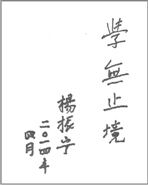 學無止境
楊振寧
二〇一四年
四月